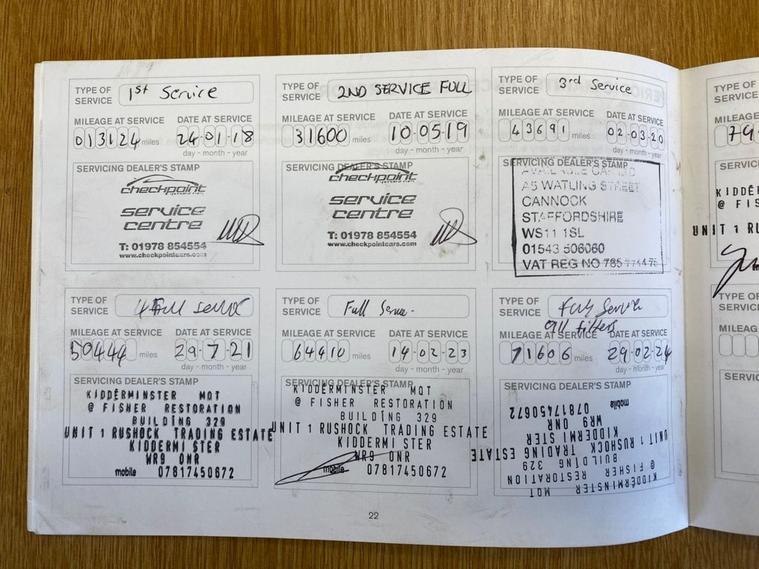 TYPE OF SERVICE 1st Service
MILEAGE AT SERVICE DATE AT SERVICE
013124 miles 24-01-18
day - month - year
SERVICING DEALER'S STAMP
checkpoint
service
centre
T: 01978 854554
www.checkpointcars.com
TYPE OF SERVICE 2ND SERVICE FULL
MILEAGE AT SERVICE DATE AT SERVICE
31600 miles 10-05-19
day - month - year
SERVICING DEALER'S STAMP
checkpoint
service
centre
T: 01978 854554
www.checkpointcars.com
TYPE OF SERVICE 3rd Service
MILEAGE AT SERVICE DATE AT SERVICE
43691 miles 02-03-20
day - month - year
SERVICING DEALER'S STAMP
A5 WATLING STREET
CANNOCK
STAFFORDSHIRE
WS11 1SL
01543 506060
VAT REG NO 785
TYPE OF SERVICE 4 Full service
MILEAGE AT SERVICE DATE AT SERVICE
50444 miles 29-7-21
day - month - year
SERVICING DEALER'S STAMP
KIDDERMINSTER MOT
@ FISHER RESTORATION
BUILDING 329
UNIT 1 RUSHOCK TRADING ESTATE
KIDDERMI STER
WR9 0NR
mobile 07817450672
TYPE OF SERVICE Full
MILEAGE AT SERVICE DATE AT SERVICE
64410 miles 14-02-23
day - month - year
SERVICING DEALER'S STAMP
KIDDERMINSTER MOT
@ FISHER RESTORATION
BUILDING 329
UNIT 1 RUSHOCK TRADING ESTATE
KIDDERMI STER
WR9 0NR
mobile 07817450672
TYPE OF SERVICE Full Service
all filters
MILEAGE AT SERVICE DATE AT SERVICE
71606 miles 29-02-24
day - month - year
SERVICING DEALER'S STAMP
KIDDERMINSTER MOT
@ FISHER RESTORATION
BUILDING 329
UNIT 1 RUSHOCK TRADING ESTATE
KIDDERMI STER
WR9 0NR
mobile 07817450672
22
TYPE OF SERVICE
MILEAGE
79
SERVICING
KIDDE
@ FIS
UNIT 1 RU
TYPE OF SERVICE
MILEAGE
SERVIC